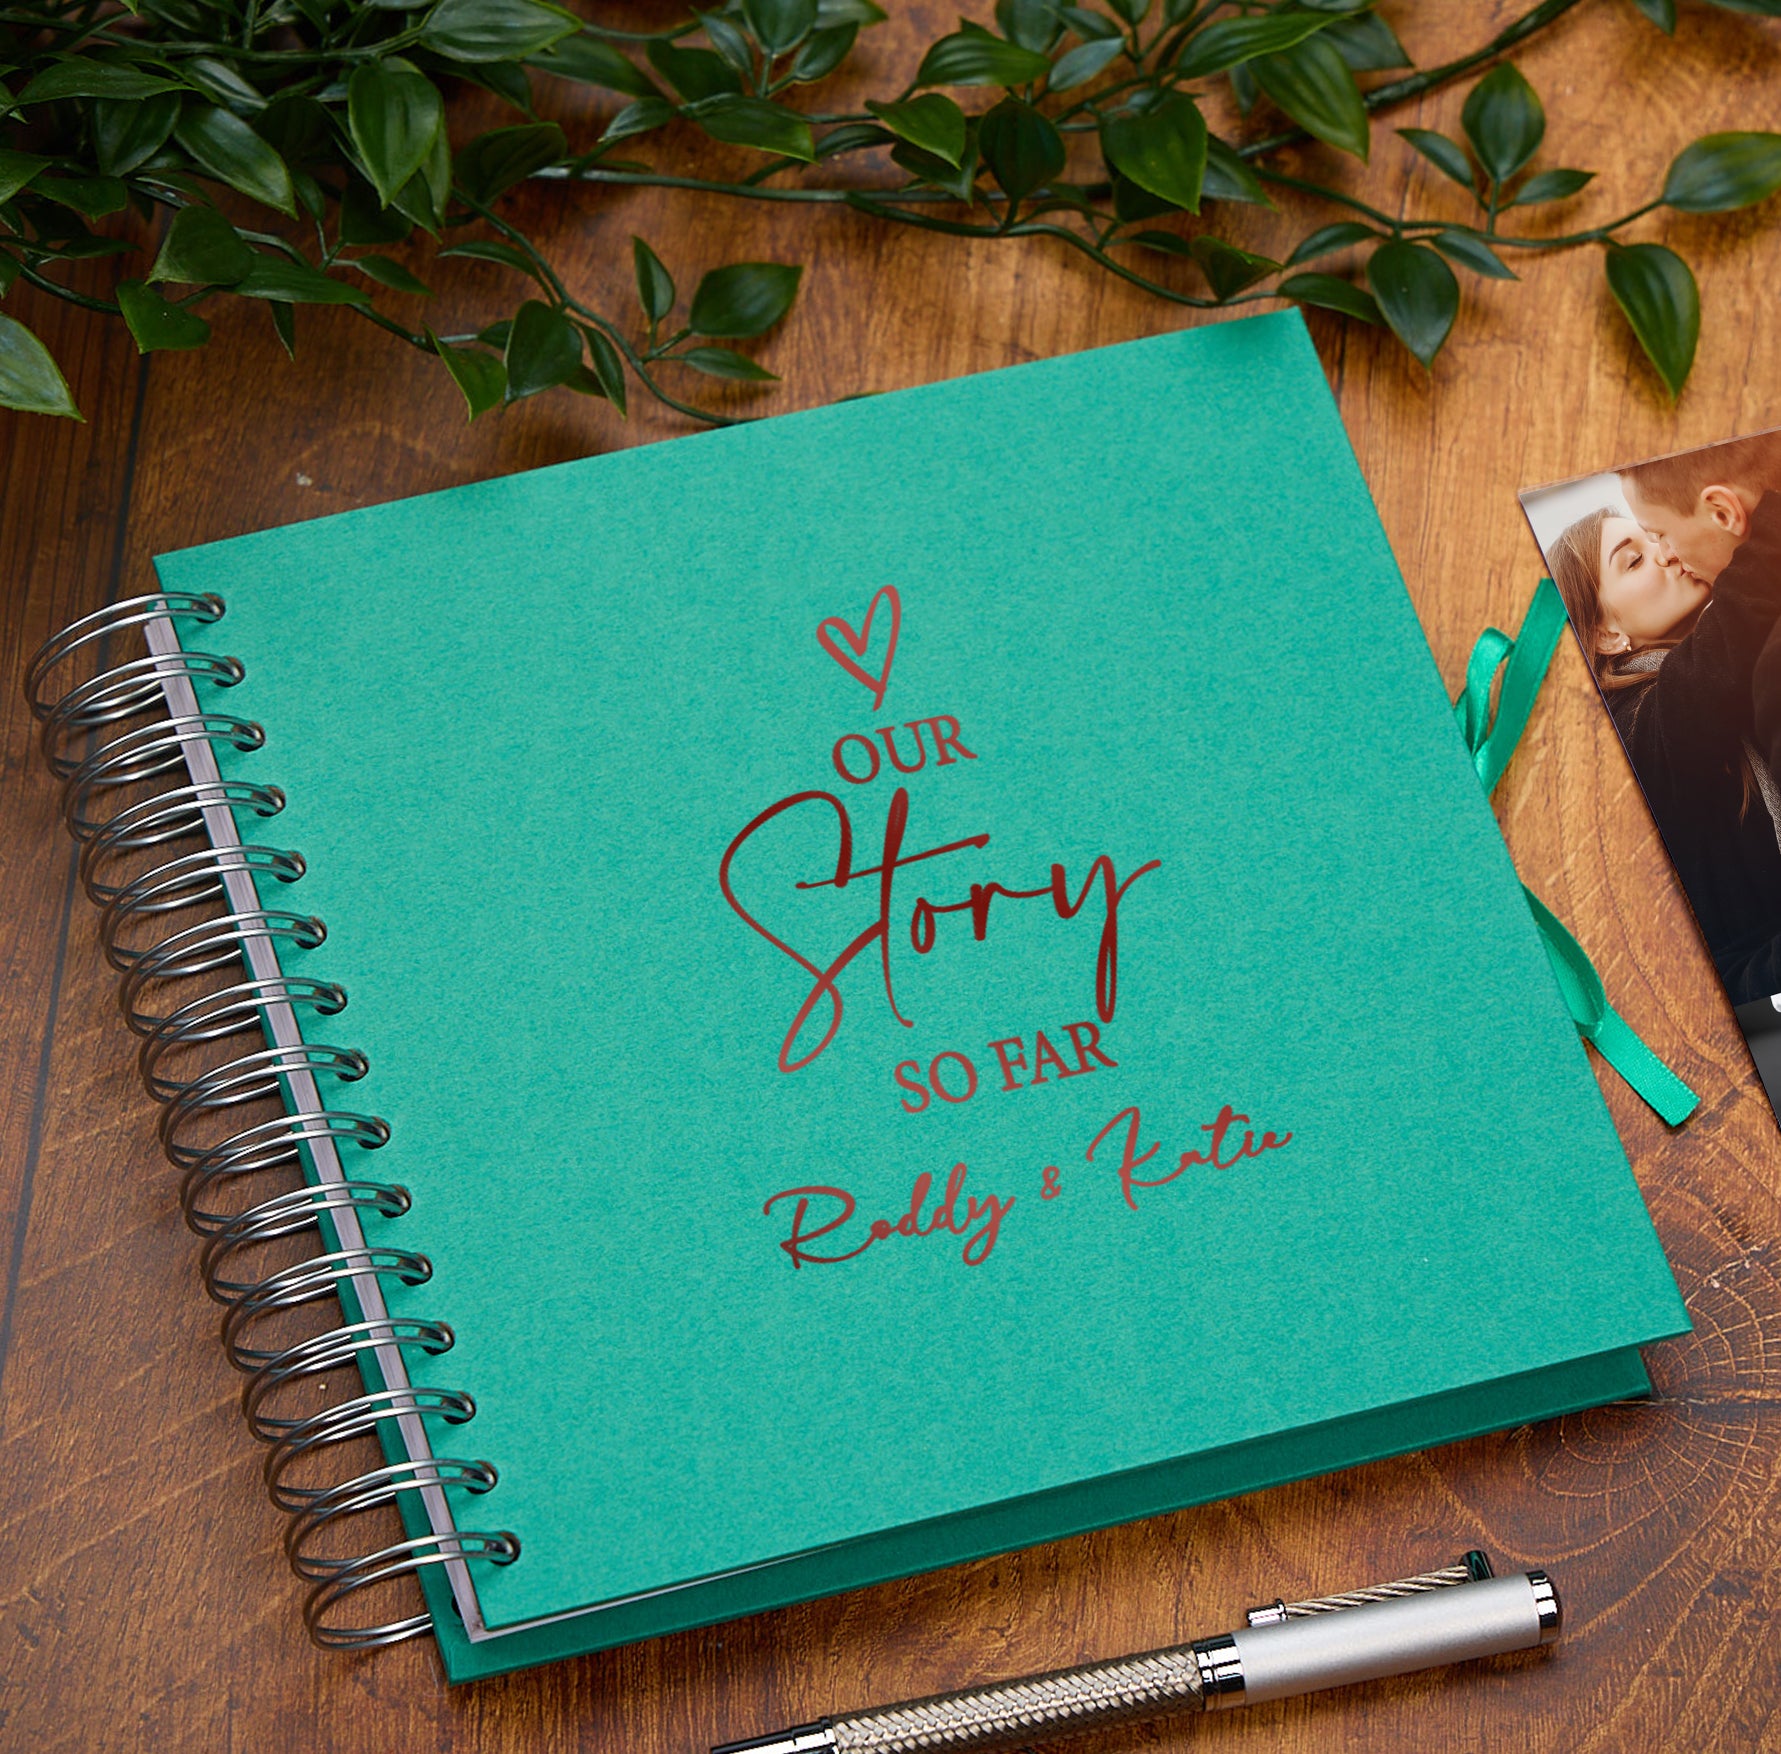 OUR
Story
SO FAR
Roddy & Katie